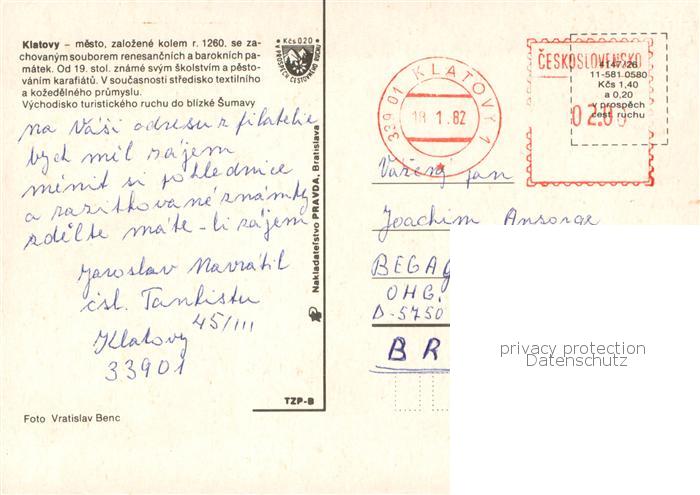 Klatovy – město, založené kolem r. 1260, se za-
chovaným souborem renesančních a barokních pa-
mátek. Od 19. stol. známé svým školstvím a pěsto-
váním karafiátů. V současnosti středisko textilního
a kožedělného průmyslu.
Východisko turistického ruchu do blízké Šumavy
Kčs 0,20
V PROSPĚCH CESTOVNÉHO RUCHU
na Váši adresu z filatelie
bych měl zájem
měnit si pohlednice
a razítkované známky
zdělte máte-li zájem
Jaroslav Navrátil
čsl. Tankistu
45/III
Klatovy
33901
Foto Vratislav Benc
TZP-B
Nakladateľstvo PRAVDA, Bratislava
339 01 KLATOVY 1
18 1.82
ČESKOSLOVENSKO
02.00
4147/26
11-581 0580
Kčs 1,40
a 0,20
v prospěch
cest. ruchu
Vážený pan
Joachim Ansorge
BEGA
OHG.
D-5750
BR
privacy protection
Datenschutz